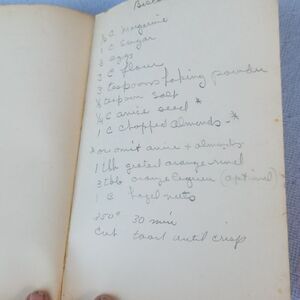 Bisco
½ C Margarine
1 C Sugar
3 eggs
3 C flour
3 teaspoons baking powder
½ teaspoon salt
¼ C anise seed *
1 C chopped almonds - *
* or omit anise + almonds
1 tbl grated orange rind
3 tbls orange liqueur (optional)
1 C hazel nuts
350° 30 min
Cut toast until crisp